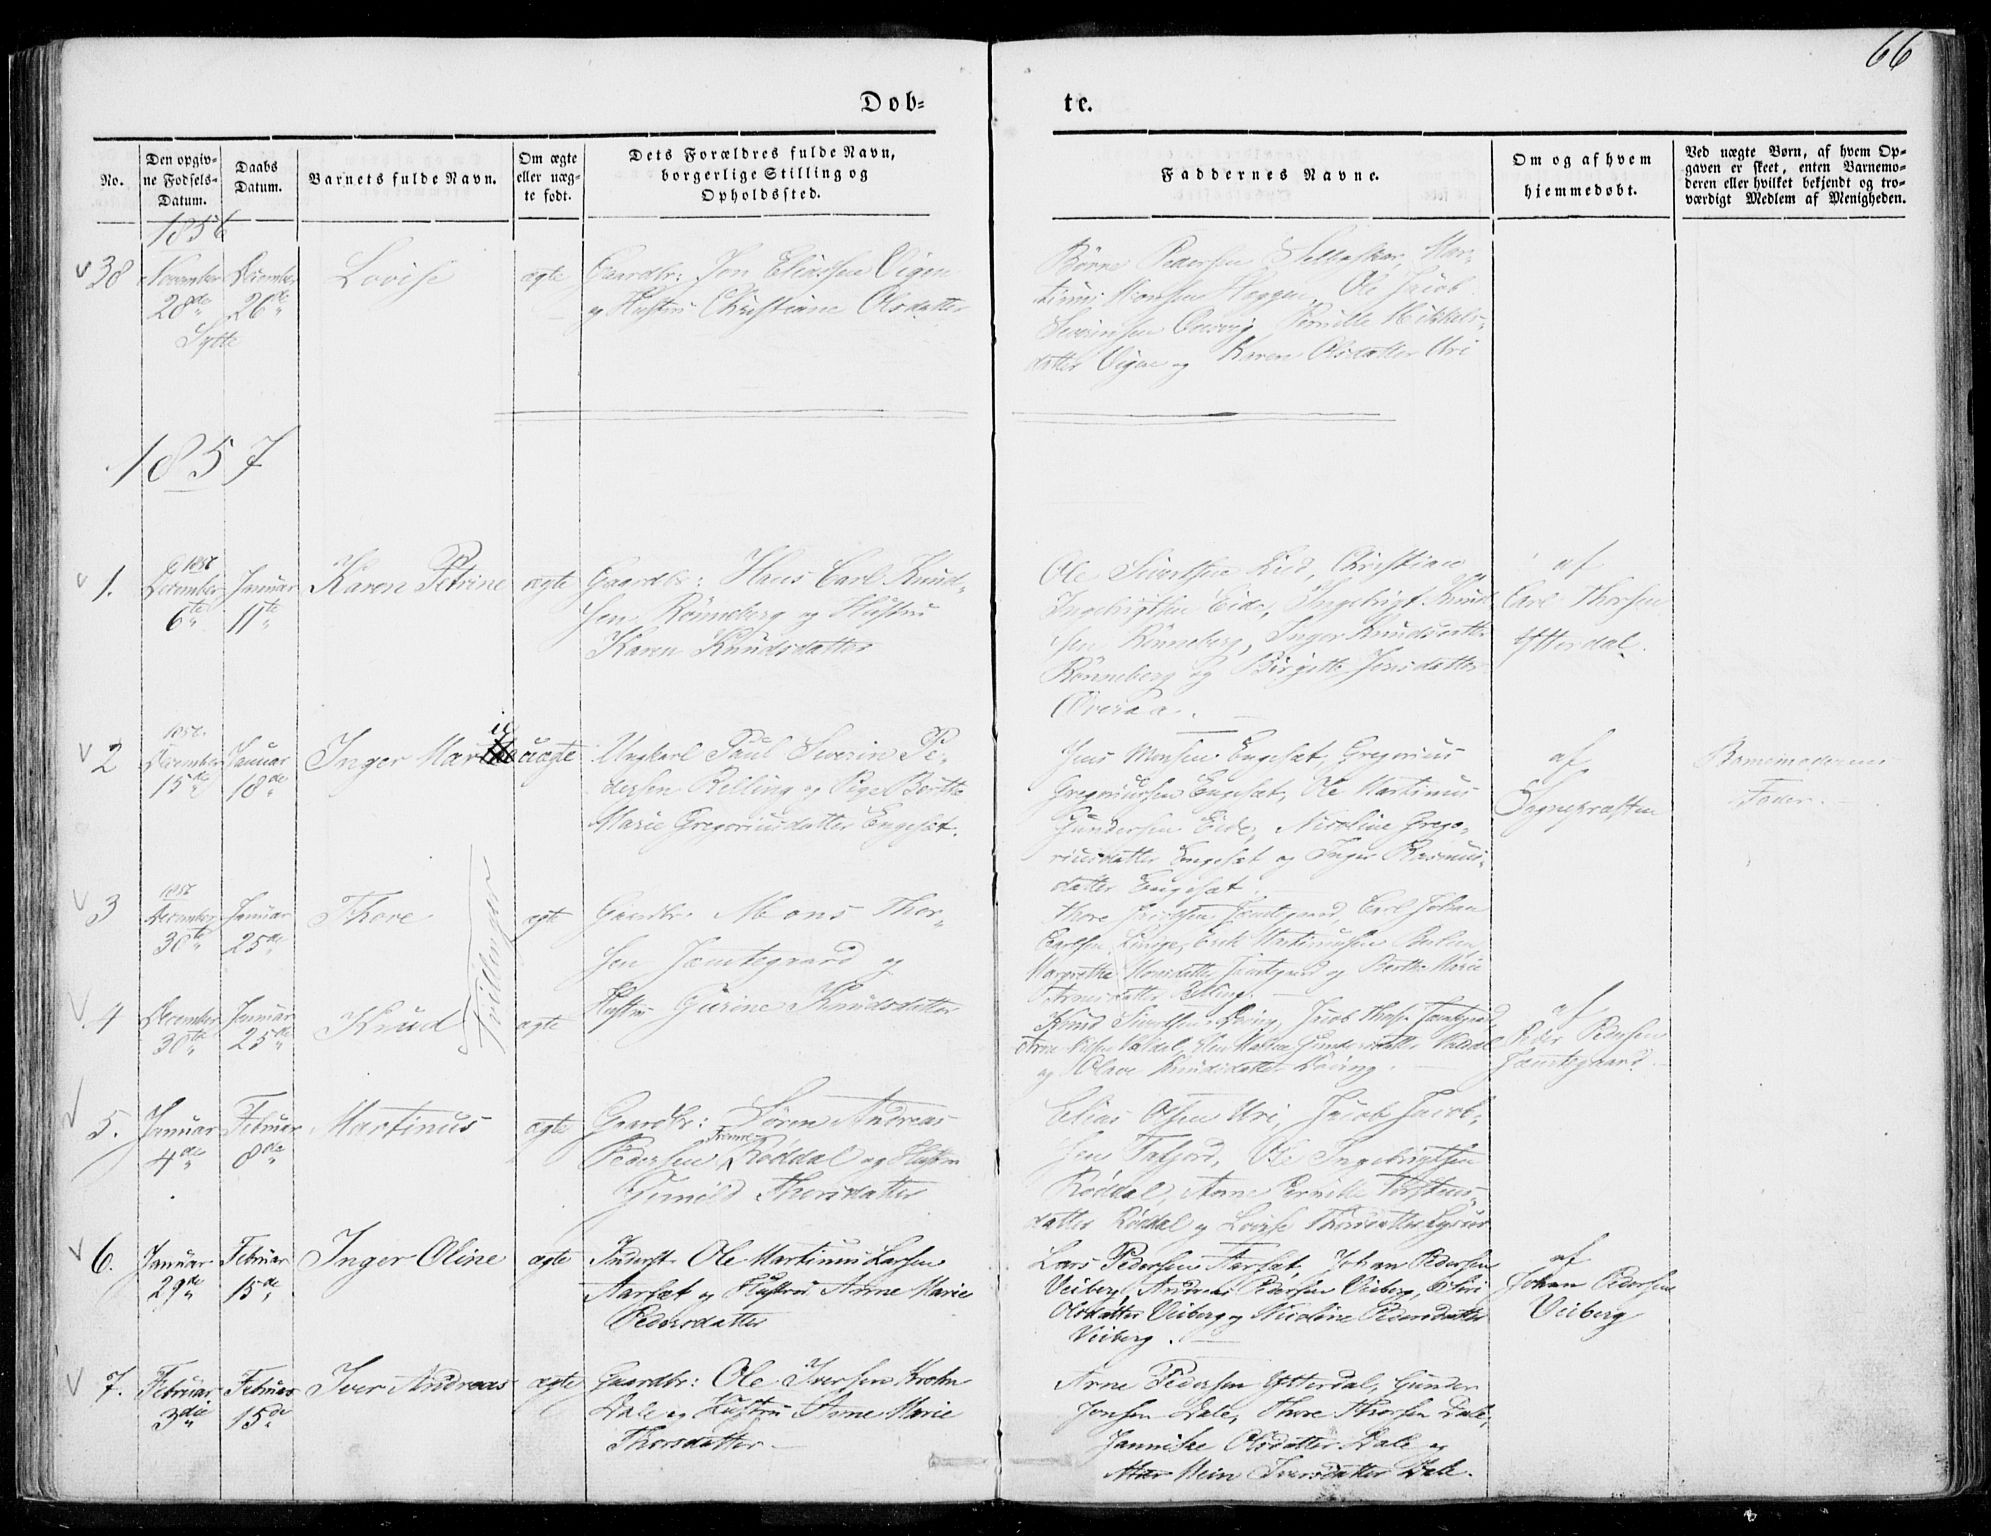 66
Dob-
te.
No.
Den opgiv-
ne Fodsels-
Datum.
Daabs
Datum.
Barnets fulde Navn.
Om ægte
eller uæg-
te fodt.
Dets Forældres fulde Navn,
borgerlige Stilling og
Opholdssted.
Faddernes Navne.
Om og af hvem
hjemmedobt.
Ved uægte Born, af hvem Op-
gaven er skeet, enten Barnemo-
deren eller hvilket bekjendt og tro-
værdigt Medlem af Menigheden.
1856
38
November
28de
Sylte
December
26de
Lovise
ægte
Gaardbr: Jon Eliassen Vigen
og Hustru Christiane Olsdatter
Børre Pedersen
Ole Jacob
Severinsen Pernille Mikkels-
datter Vigen og Karen Olsdatter Uri
1857
1.
1856
December
6te
Januar
11te
Karen Petrine
ægte
Gaardbr: Hans Carl Knud-
sen Rønneberg og Hustru
Karen Knudsdatter
Ole Sivertsen Eid, Christian
Ingebrigtsen Eide, Ingebrigt Knud-
sen Rønneberg, Inger Knudsdatter
Rønneberg og Birgitte Jensdatter
af
Carl Thorsen
Ytterdal.
2
1856
December
15de
Januar
18de
Inger Marie
uægte
Ungkarl Paul Severin Pe-
dersen Relling og Pige Berthe
Marie Gregoriusdatter Engeset.
Jens Monsen Engeset, Gregorius
Gregoriussen Engeset, Ole Martinus
Gundersen Eide, Nicoline Grego-
riusdatter Engeset og Inger Rasmus-
datter Engeset.
af
Sognepræsten
Barnemoderens
Fader.
3
1856
December
30te
Januar
25de
Thore
Tvillinger
ægte
Gaardbr. Mons Thor-
sen Jemtegaard og
Hustru Gurine Knudsdatter
Thore Jemtegaard, Carl Johan
Carlsen Linge, Erik Martinussen
Margrethe Monsdatter Jemtegaard og Berthe Marie
Arnesdatter Relling.
4
December
30te
Januar
25de
Knud
ægte
Knud Sivertsen Døving, Jacob Thors. Jemtegaard,
Arne Valdal, Gundersdatter Valdal
og Olave Knudsdatter Døving.
af
Peder Pedersen
Jemtegaard.
5.
Januar
4de
Februar
8de
Martinus
ægte
Gaardbr: Søren Andreas
Pedersen Røddal og Hustru
Gunild Thorsdatter
Elias Olsen Uri, Jacob Jacob-
sen Tafjord, Ole Ingebrigtsen
Røddal, Anne Pernille
datter Røddal og Lovise Thorsdatter
6.
Januar
29de
Februar
15de
Inger Oline
ægte
Inderst. Ole Martinus Larsen
Aarset og Hustru Anne Marie
Pedersdatter
Lars Pedersen Aarset, Johan Pedersen
Veiberg, Andreas Pedersen Veiberg, Siri
Olsdatter Veiberg og Nicoline Pedersdatter
Veiberg.
af
Johan Pedersen
Veiberg
7.
Februar
3die
Februar
15de
Iver Andreas
ægte
Gaardbr: Ole Iversen Krohn
Dale og Hustru Anne Marie
Thorsdatter.
Arne Pedersen Ytterdal, Gunder
Jonsen Dale, Thore Thorsen Dale,
Jannike Olsdatter Dale og
Iversdatter Dale.